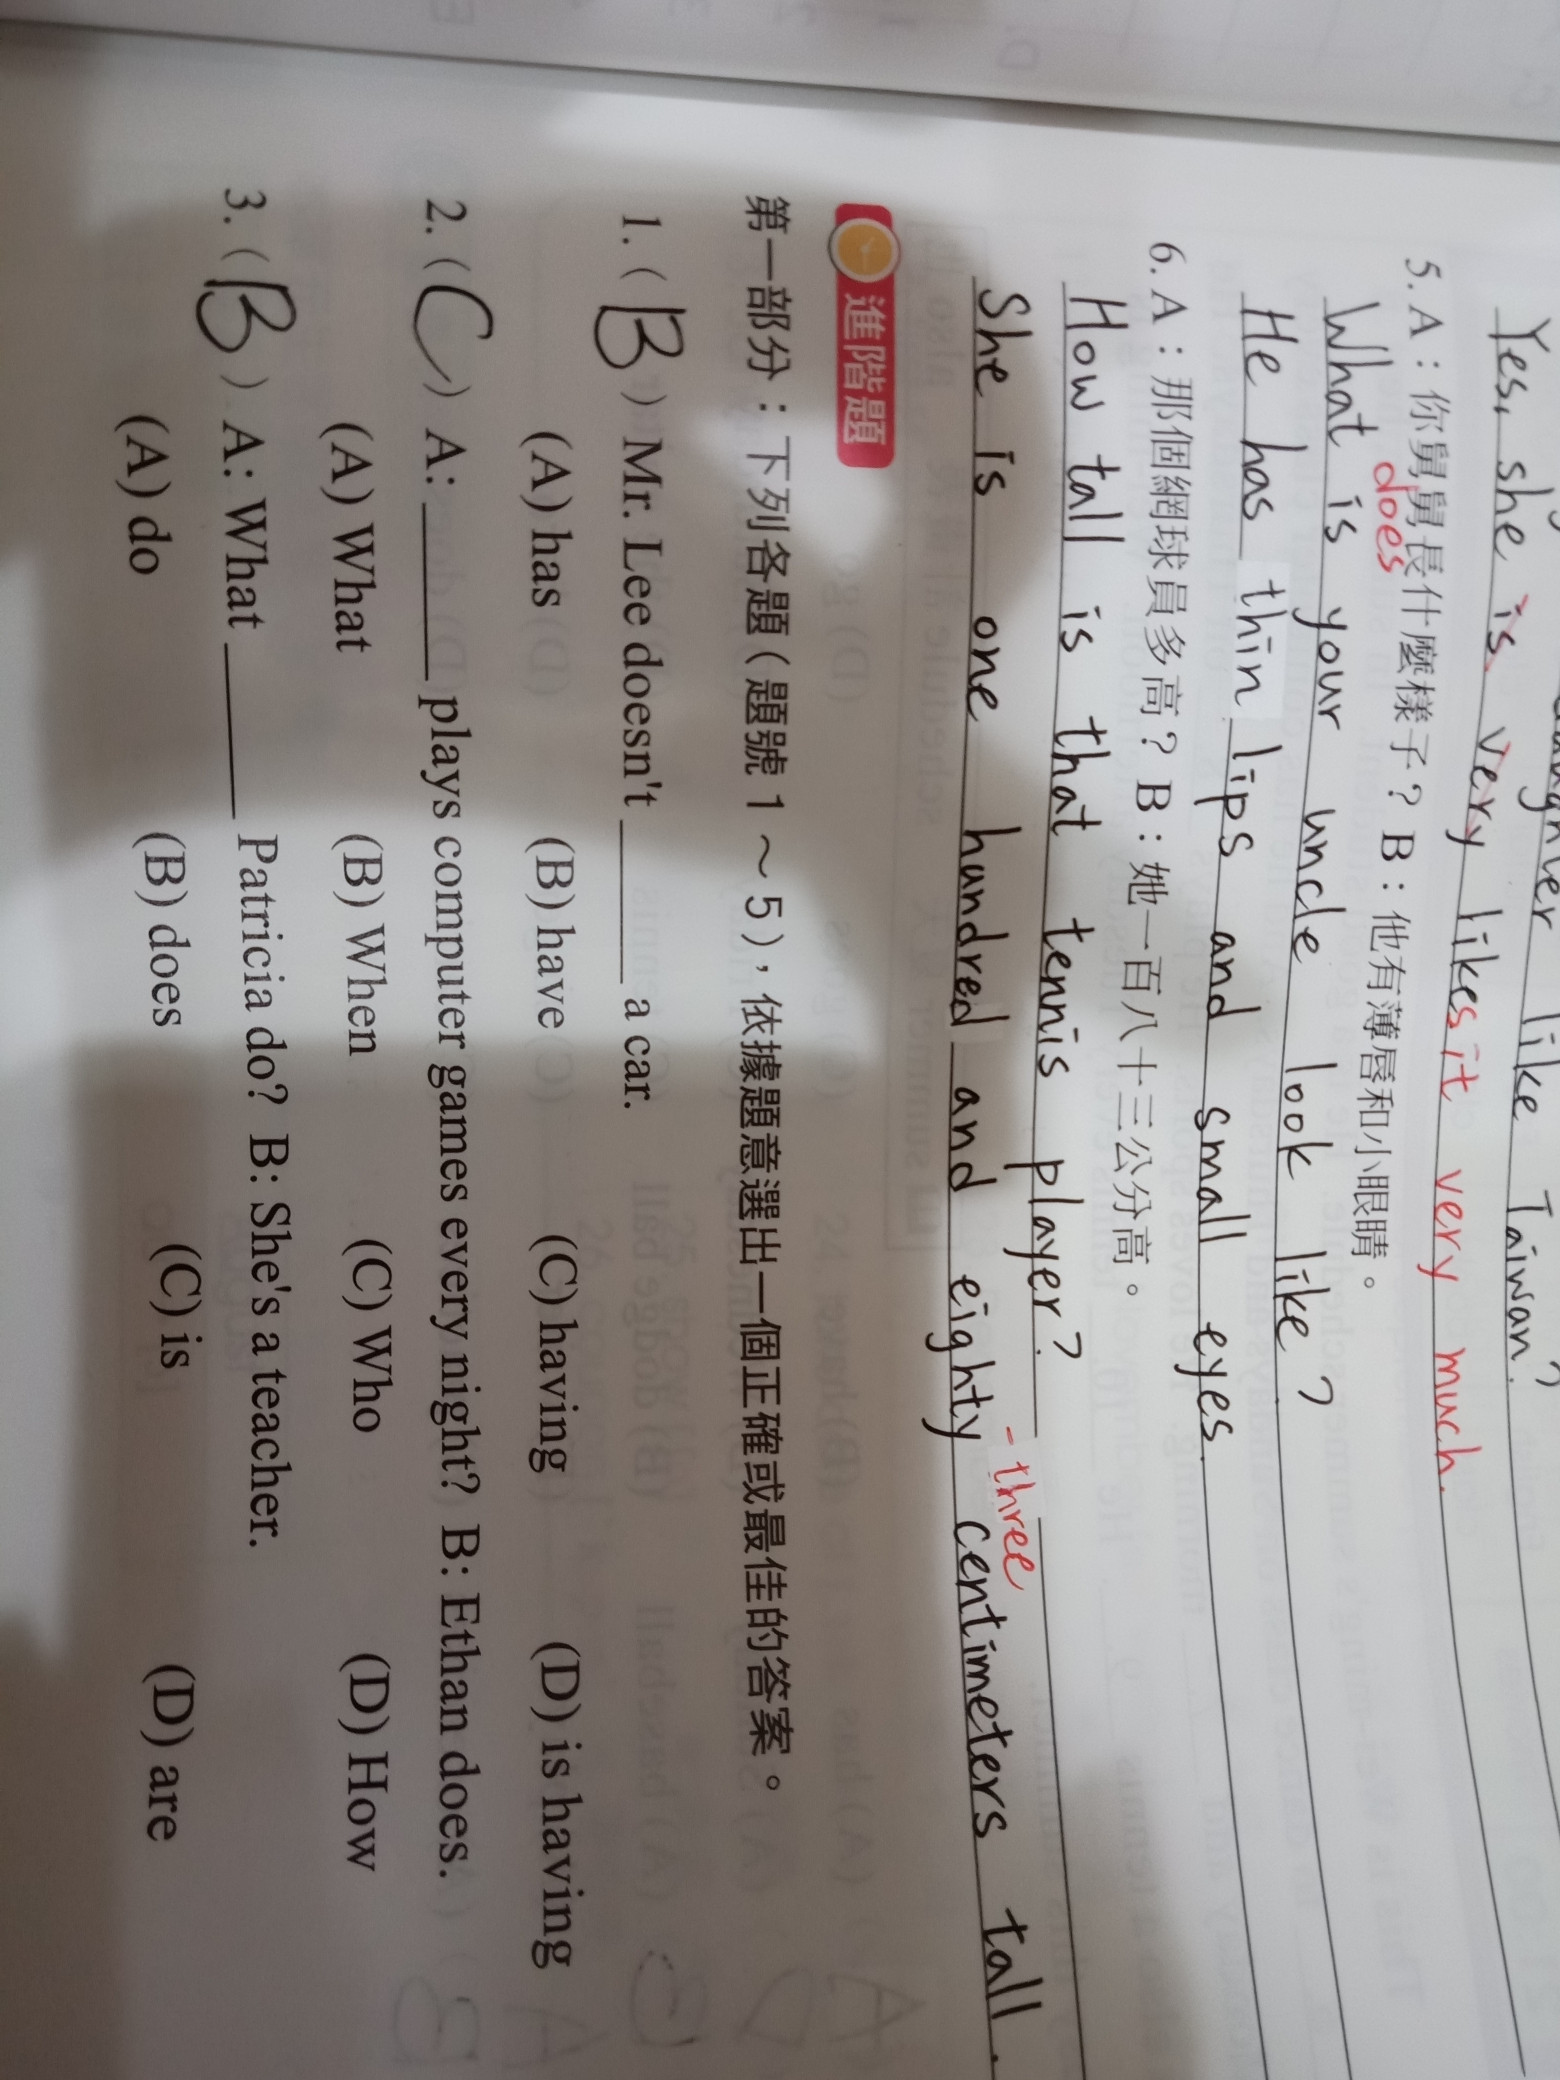 like Taiwan?
Yes, she is very likes it very much.
5. A：你舅舅長什麼樣子？B：他有薄唇和小眼睛。
does
What is your uncle look like?
He has thin lips and small eyes
6. A：那個網球員多高？B：她一百八十三公分高。
How tall is that tennis player?
-three
She is one hundred and eighty centimeters tall.
進階題
第一部分：下列各題（題號1～5），依據題意選出一個正確或最佳的答案。
1. ( B ) Mr. Lee doesn't ______ a car.
(A) has (B) have (C) having (D) is having
2. ( C ) A: ______ plays computer games every night? B: Ethan does.
(A) What (B) When (C) Who (D) How
3. ( B ) A: What ______ Patricia do? B: She's a teacher.
(A) do (B) does (C) is (D) are